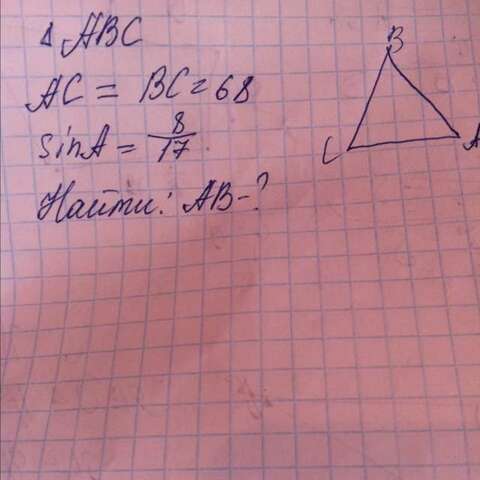 Δ ABC
AC = BC = 68
sinA = 8/17
Найти: AB-?
B
C
A